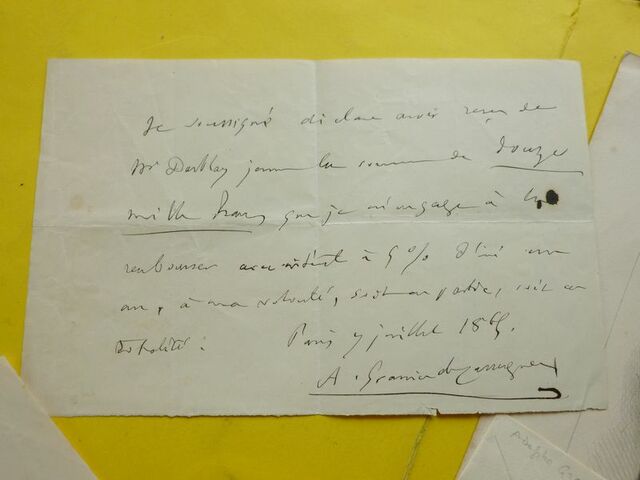 Je soussigné déclare avoir reçu de
Mr Darblay jeune la somme de douze
mille francs que je m'engage à lui
rembourser avec intérêt à 5 % d'ici un
an, à ma volonté, soit en partie, soit en
totalité.
Paris 7 juillet 1865.
A. Granier de Cassagnac
Adolphe